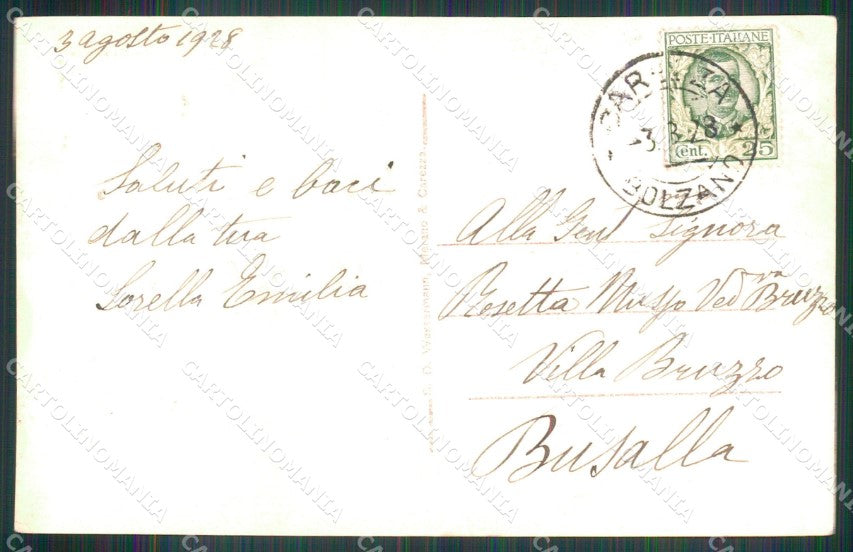 3 agosto 1928
Saluti e baci
dalla tua
Sorella Emilia
POSTE·ITALIANE
Cent. 25
3.8.28
BOLZANO
Alla Gen Signora
Rosetta Musso Ved va Bruzzo
Villa Bruzzo
Busalla
CARTOLINOMANIA